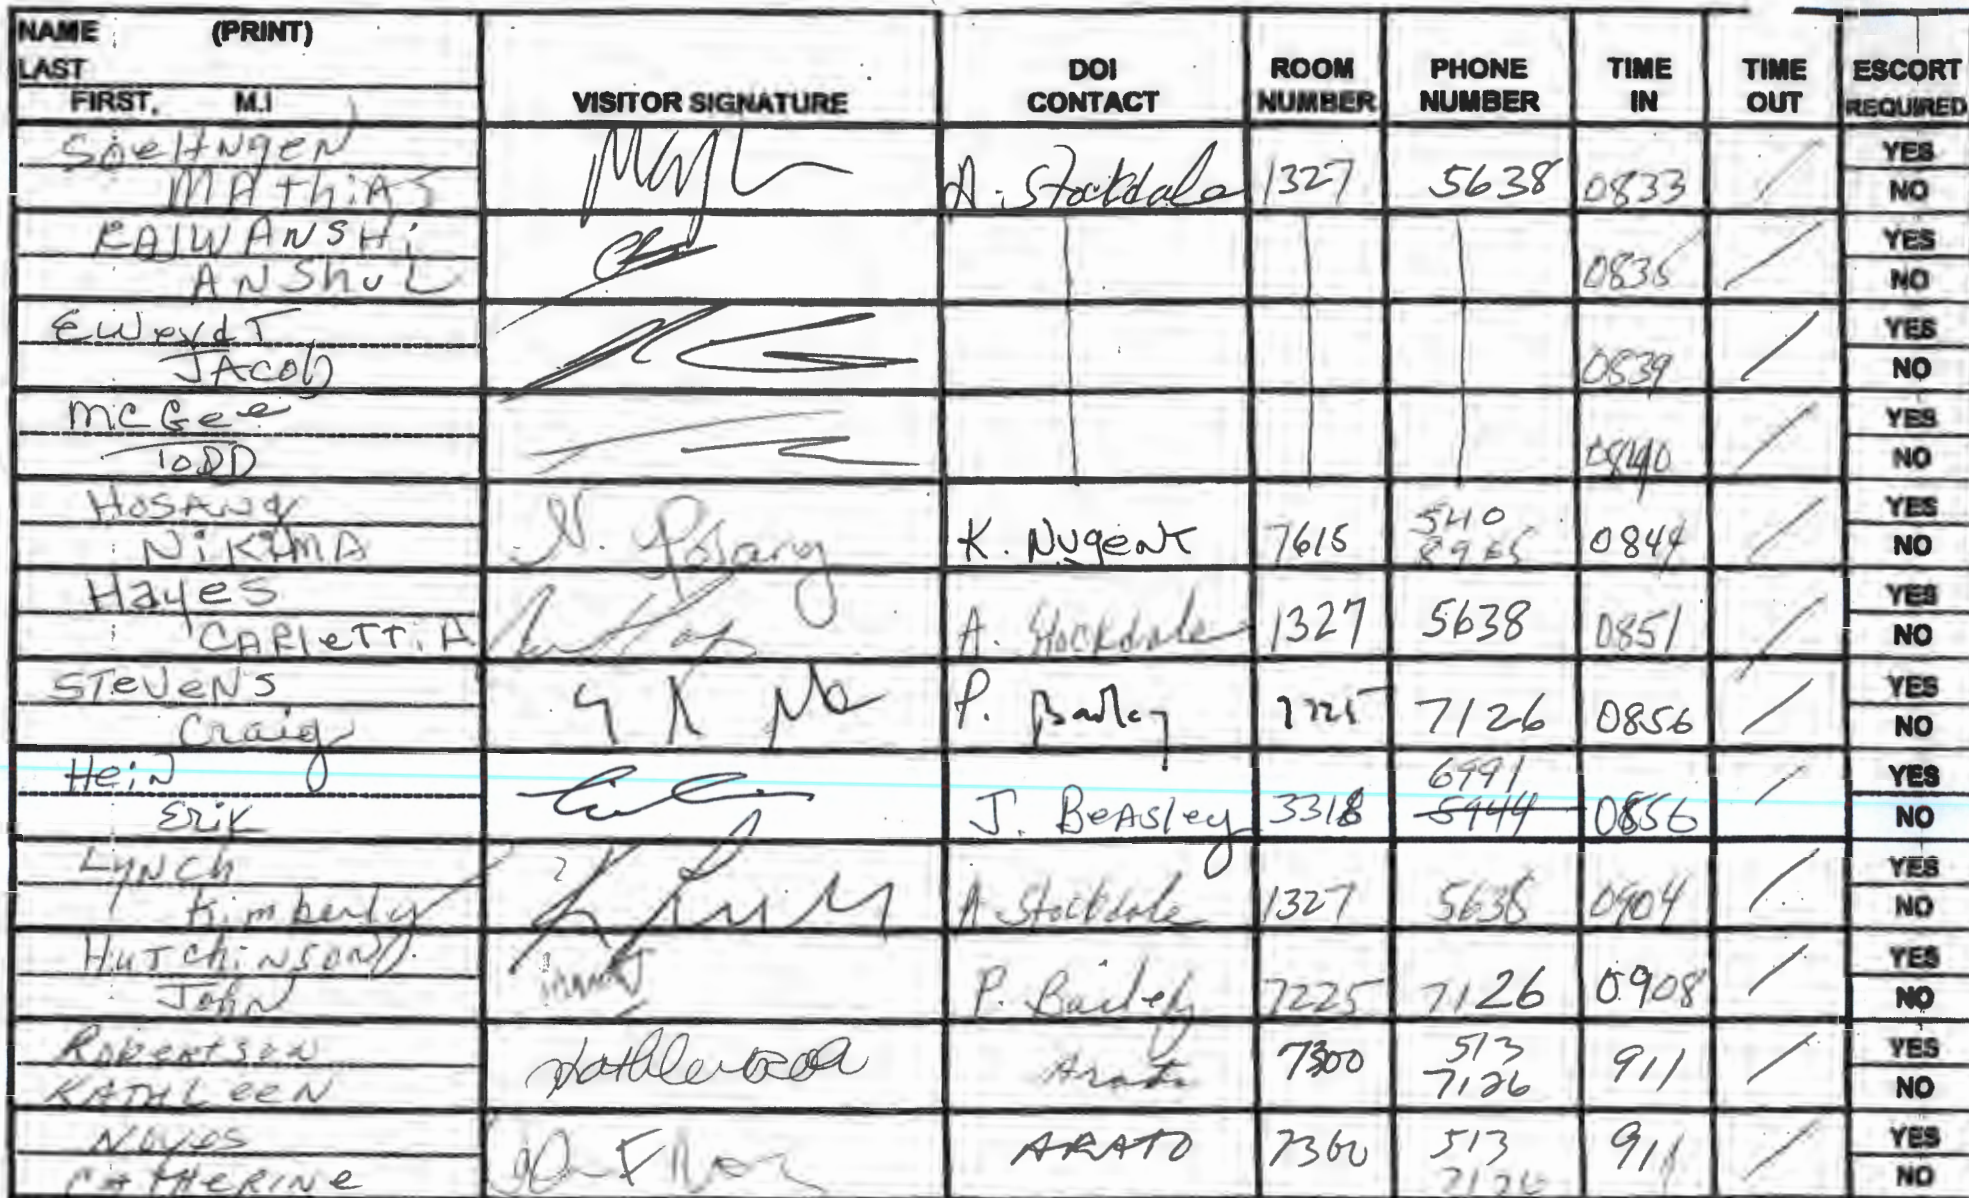 NAME (PRINT)
LAST
FIRST, M.I
VISITOR SIGNATURE
DOI CONTACT
ROOM NUMBER
PHONE NUMBER
TIME IN
TIME OUT
ESCORT REQUIRED
SoeHNgeN
MAthiAS A. Stockdale 1327 5638 0833 YES NO
RAJWANSHi
ANShuL 0835 YES NO
EWeydT
JACOb 0839 YES NO
MCGee
TODD 0840 YES NO
HOSANG
NiKiMA N. Hosang K. Nugent 7615 540 8965 0844 YES NO
Hayes
CARleTTiA A. Stockdale 1327 5638 0851 YES NO
STeVeNS
Craig P. Bailey 7225 7126 0856 YES NO
HeiN
Erik J. BeAsley 3318 6991 5944 0856 YES NO
LyNCh
Kimberly A Stockdale 1327 5638 0904 YES NO
HuTChiNSON
JohN P. Bailey 7225 7126 0908 YES NO
RobertSoN
KATHLeeN Arato 7300 513 7126 911 YES NO
Noyes
CATHERINe ARATO 7300 513 7126 911 YES NO